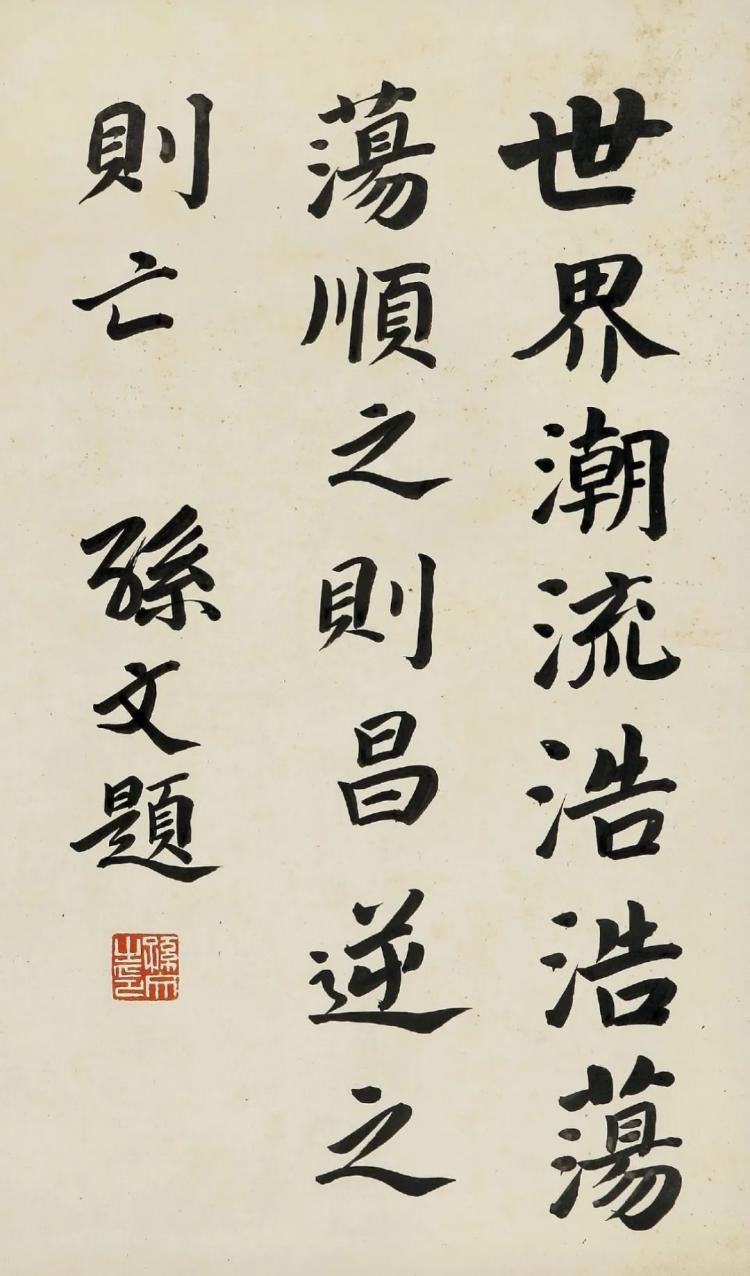 世界潮流浩浩蕩
蕩順之則昌逆之
則亡 孫文題
孫文之印